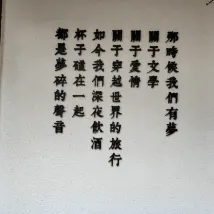 那時候我們有夢
關于文學
關于愛情
關于穿越世界的旅行
如今我們深夜飲酒
杯子碰在一起
都是夢碎的聲音